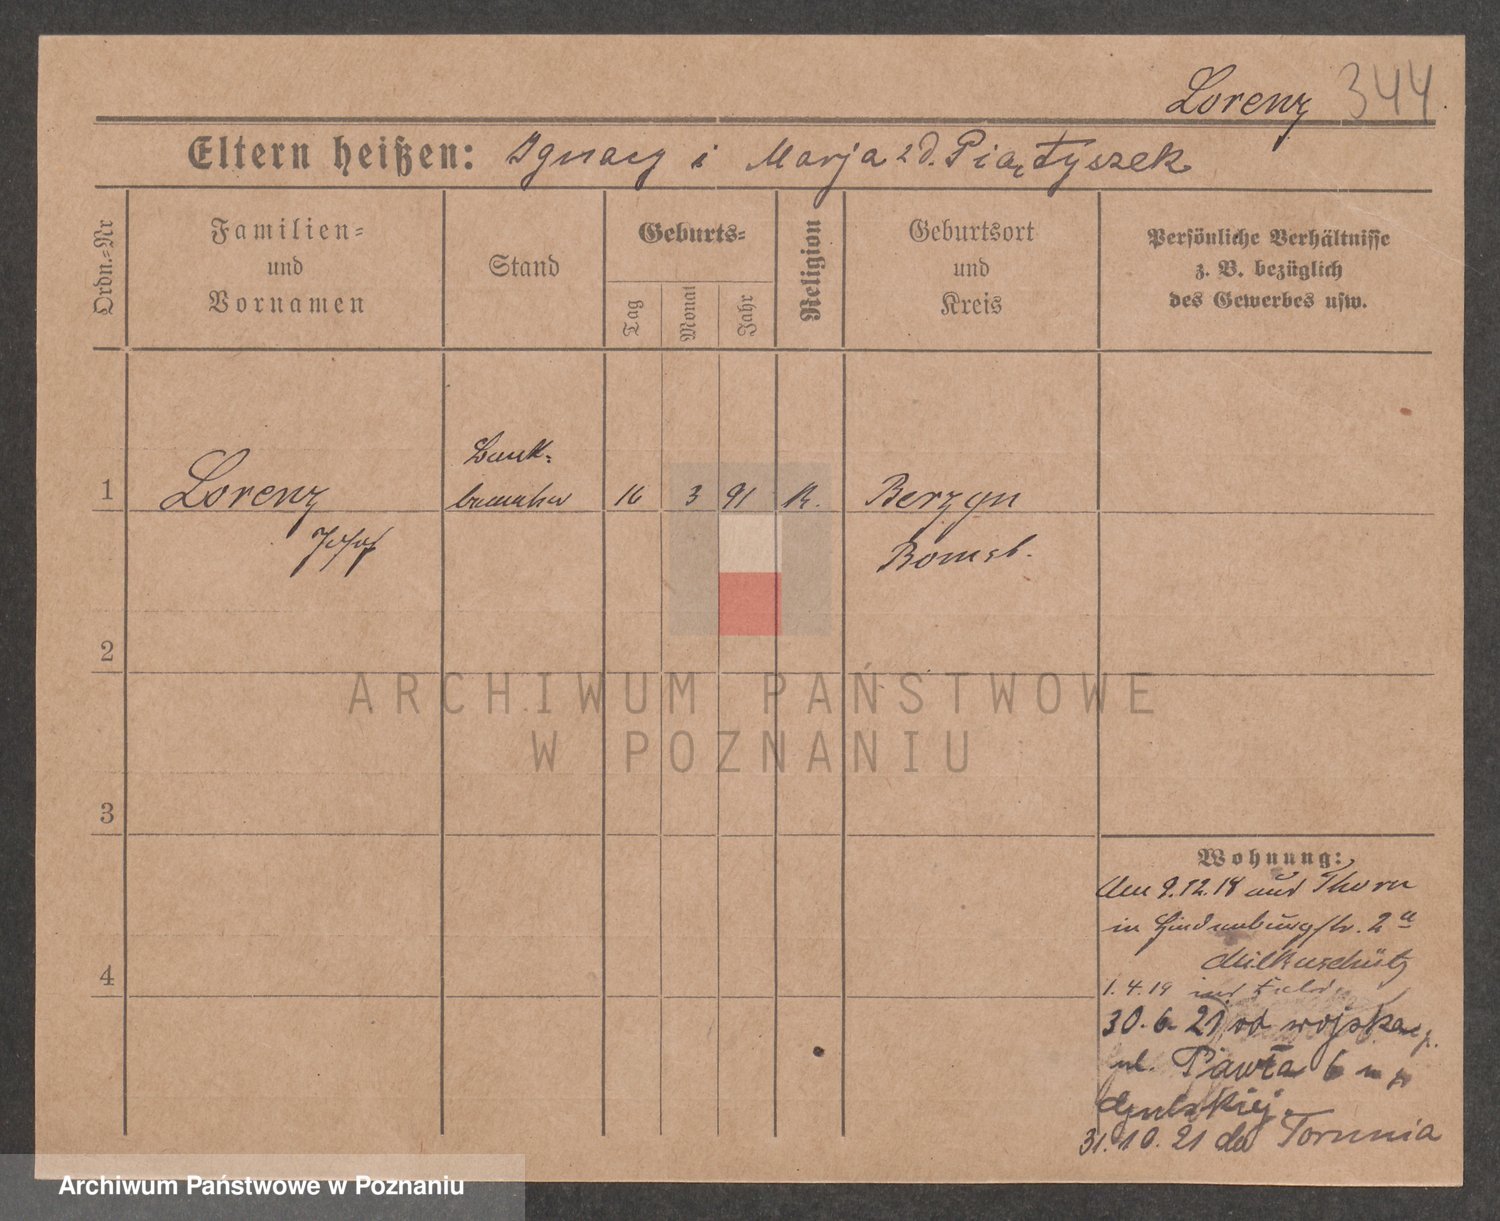 Lorenz 344
Eltern heißen: Ignacy i Marja z d. Piątyszek
Ordn.=Nr
Familien=
und
Vornamen
Stand
Geburts=
Tag
Monat
Jahr
Religion
Geburtsort
und
Kreis
Persönliche Verhältnisse
z. B. bezüglich
des Gewerbes usw.
1
Lorenz
Josef
Bank=
beamter
16 3 91 K.
Berzyn
Bomst.
2
3
4
Wohnung:
Am 9.12.18 aus Thorn
in Hindenburgstr. 2a
1.4.19 ins Feld
30.6.21 od wojska
ul. Pawła 6
31.10.21 do Torunia
ARCHIWUM PAŃSTWOWE
W POZNANIU
Archiwum Państwowe w Poznaniu